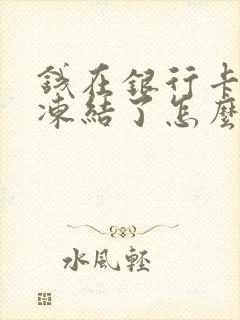 錢在銀行卡
凍結了怎麼
水風輕